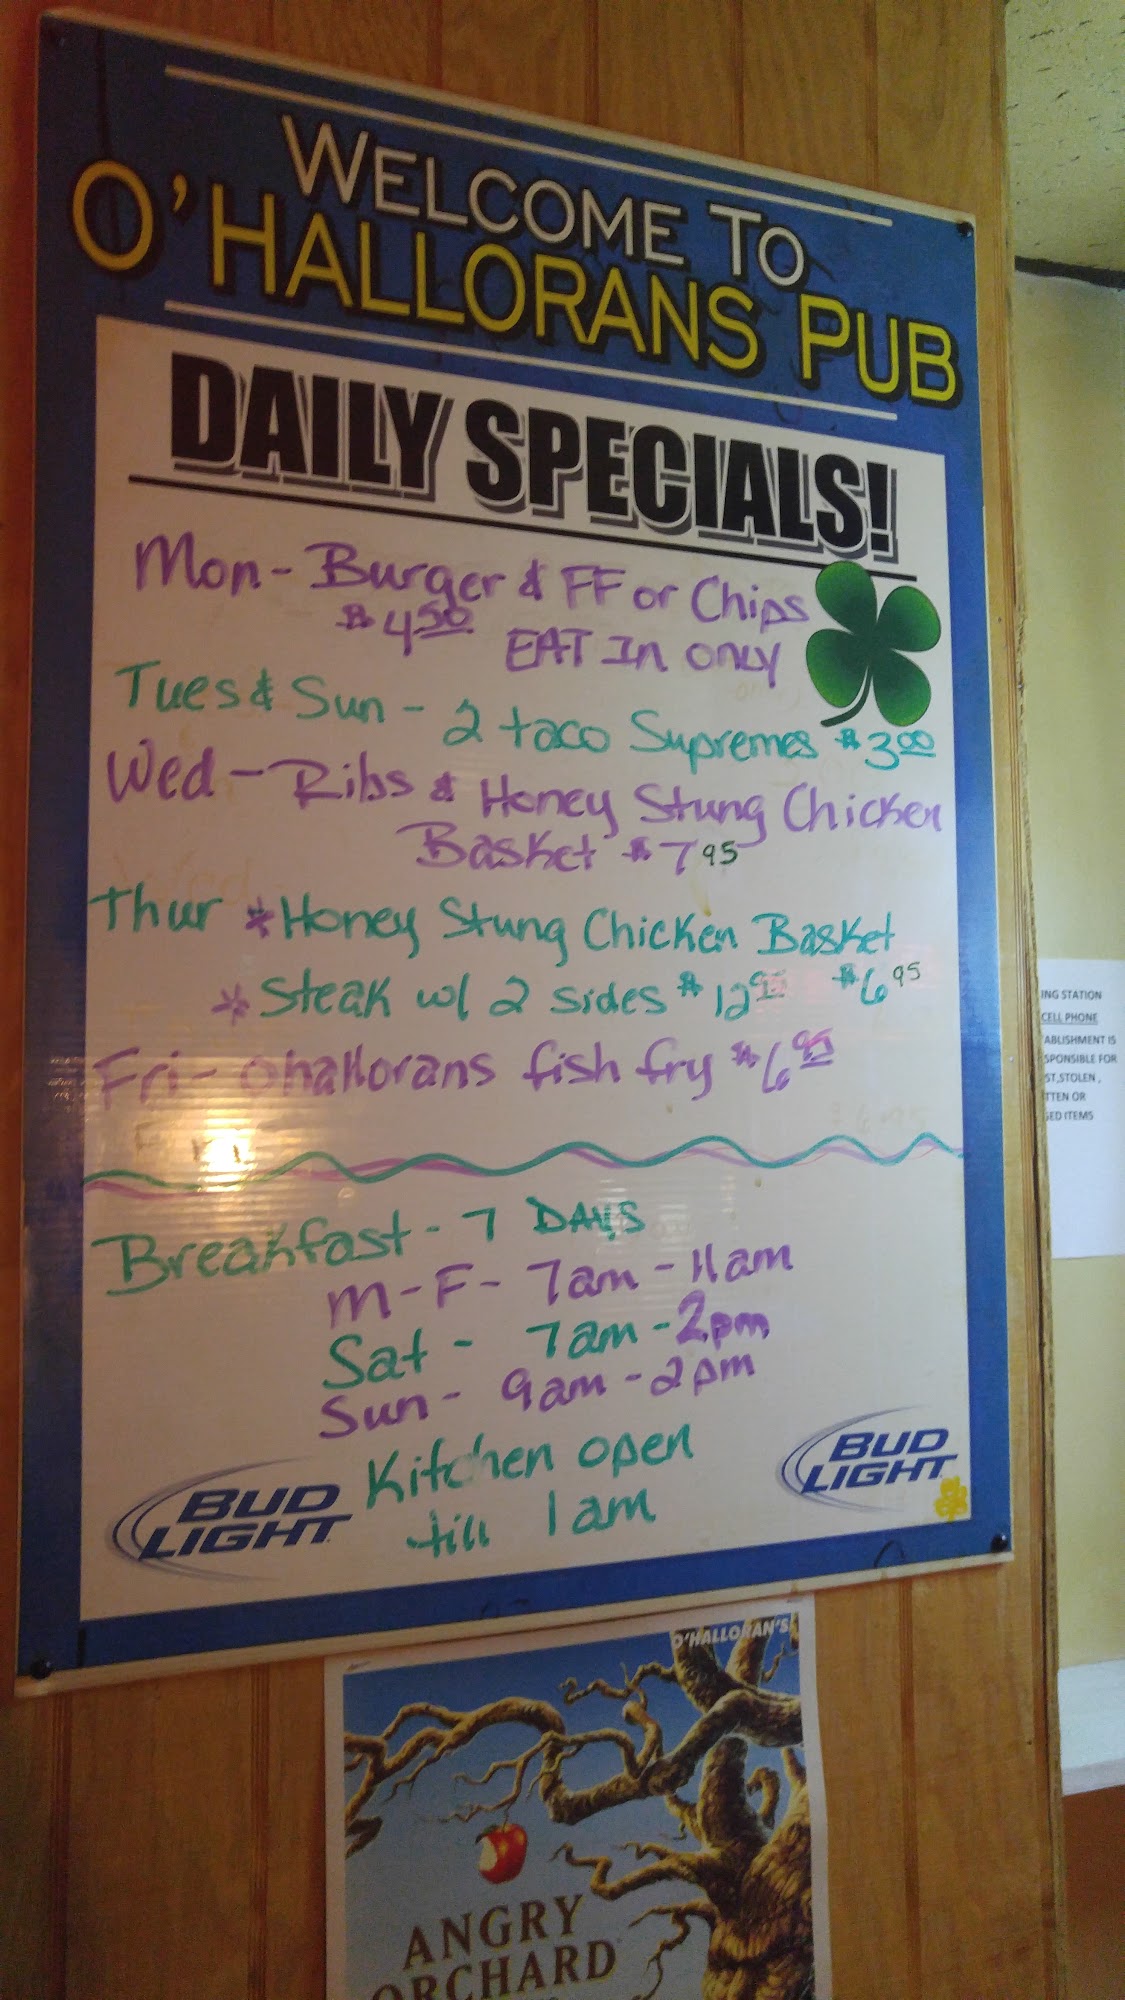 WELCOME TO
O'HALLORANS PUB
DAILY SPECIALS!
Mon - Burger & FF or Chips
$4.50 EAT In only
Tues & Sun - 2 taco Supremes $3.00
Wed - Ribs & Honey Stung Chicken
Basket $7.95
Thur * Honey Stung Chicken Basket
$6.95
* Steak w/ 2 sides $12.95
Fri - Ohallorans fish fry $6.95
Breakfast - 7 DAYS
M-F - 7am - 11am
Sat - 7am - 2pm
Sun - 9am - 2pm
Kitchen open
till 1am
BUD
LIGHT
BUD
LIGHT
ING STATION
CELL PHONE
ABLISHMENT IS
SPONSIBLE FOR
ST,STOLEN ,
TTEN OR
GED ITEMS
O'HALLORAN'S
ANGRY
ORCHARD